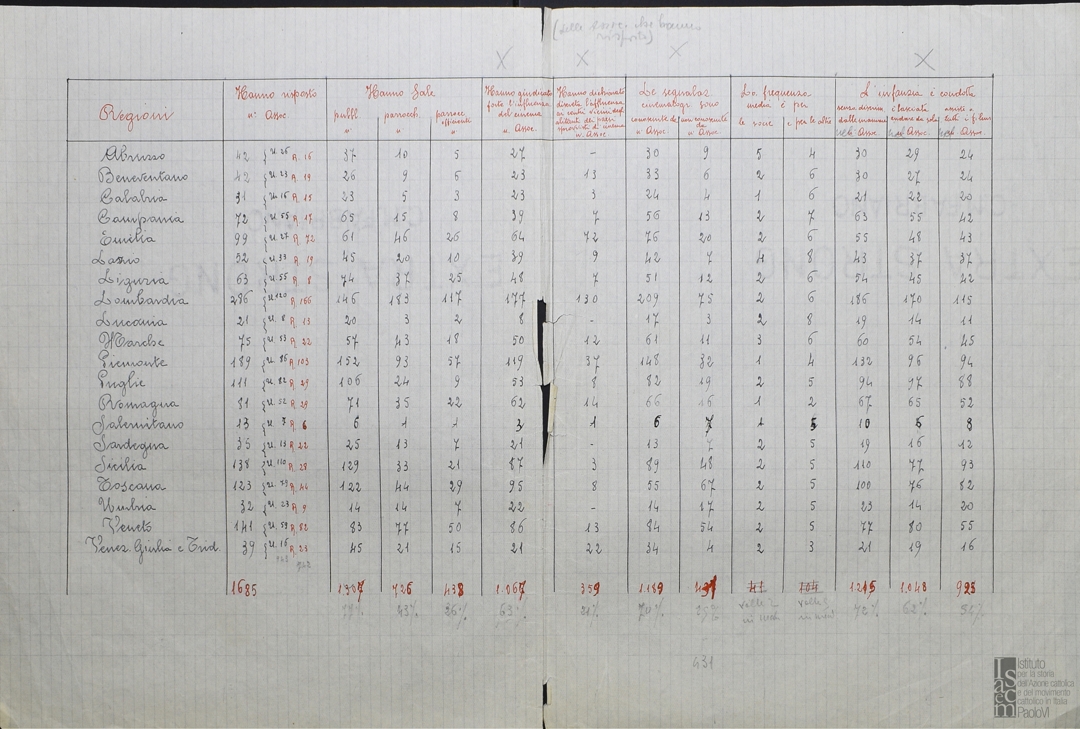 (delle assoc. che hanno
risposto)
X X X X
Regioni
Hanno risposto
n° Assoc.
Hanno Sale
pubbl. parrocch. parrocc. efficienti
n° n° n°
Hanno giudicato
forte l'influenza
del cinema
n. Assoc.
Hanno dichiarato
discreta l'influenza
n. Assoc.
Le segnalaz.
cinematogr. sono
conosciute da non conosciute da
n° Assoc. n. Assoc.
La frequenza
media è per
le socie e per le altre
L'infanzia è condotta
è lasciata
andare da sola
Assoc. Assoc. Assoc.
Abruzzo 42 { U. 26 R. 16 37 10 5 27 - 30 9 5 4 30 29 24
Beneventano 42 { U. 23 R. 19 26 9 6 23 13 33 6 2 6 30 27 24
Calabria 31 { U. 16 R. 15 23 5 3 23 3 24 4 1 6 21 22 20
Campania 72 { U. 55 R. 17 65 15 8 39 7 56 13 2 7 63 55 42
Emilia 99 { U. 27 R. 72 61 46 26 64 72 76 20 2 6 55 48 43
Lazio 52 { U. 33 R. 19 45 20 10 39 9 42 7 4 8 43 37 37
Liguria 63 { U. 55 R. 8 74 37 25 48 7 51 12 2 6 54 45 22
Lombardia 286 { U. 120 R. 166 146 183 117 177 130 209 75 2 6 186 170 115
Lucania 21 { U. 8 R. 13 20 3 2 8 - 17 3 2 8 19 14 11
Marche 75 { U. 53 R. 22 57 43 18 50 12 61 11 3 6 60 54 45
Piemonte 189 { U. 86 R. 103 152 93 57 119 37 148 32 1 4 132 96 94
Puglie 111 { U. 82 R. 29 106 24 9 53 8 82 19 2 5 94 97 88
Romagna 81 { U. 52 R. 29 71 35 22 62 14 66 16 1 2 67 65 52
Salernitano 13 { U. 7 R. 6 6 1 1 3 1 6 7 1 5 10 6 8
Sardegna 35 { U. 13 R. 22 25 13 7 21 - 13 7 2 5 19 16 12
Sicilia 138 { U. 110 R. 28 129 33 21 87 3 89 48 2 5 110 77 93
Toscana 123 { U. 79 R. 44 122 44 29 95 8 55 67 2 5 100 76 82
Umbria 32 { U. 23 R. 9 14 14 7 22 - 14 17 2 5 23 14 20
Veneto 141 { U. 59 R. 82 83 77 50 86 13 84 54 2 5 77 80 55
Venez. Giulia e Trid. 39 { U. 16 R. 23 45 21 15 21 22 34 4 2 3 21 19 16
1685 1307 726 438 1.067 359 1.189 431 41 104 1215 1.048 925
77% 43% 26% 63% 21% 70% 25% 72% 62% 54%
431
Isacem
Istituto
per la storia
dell'Azione cattolica
e del movimento
cattolico in Italia
PaoloVI